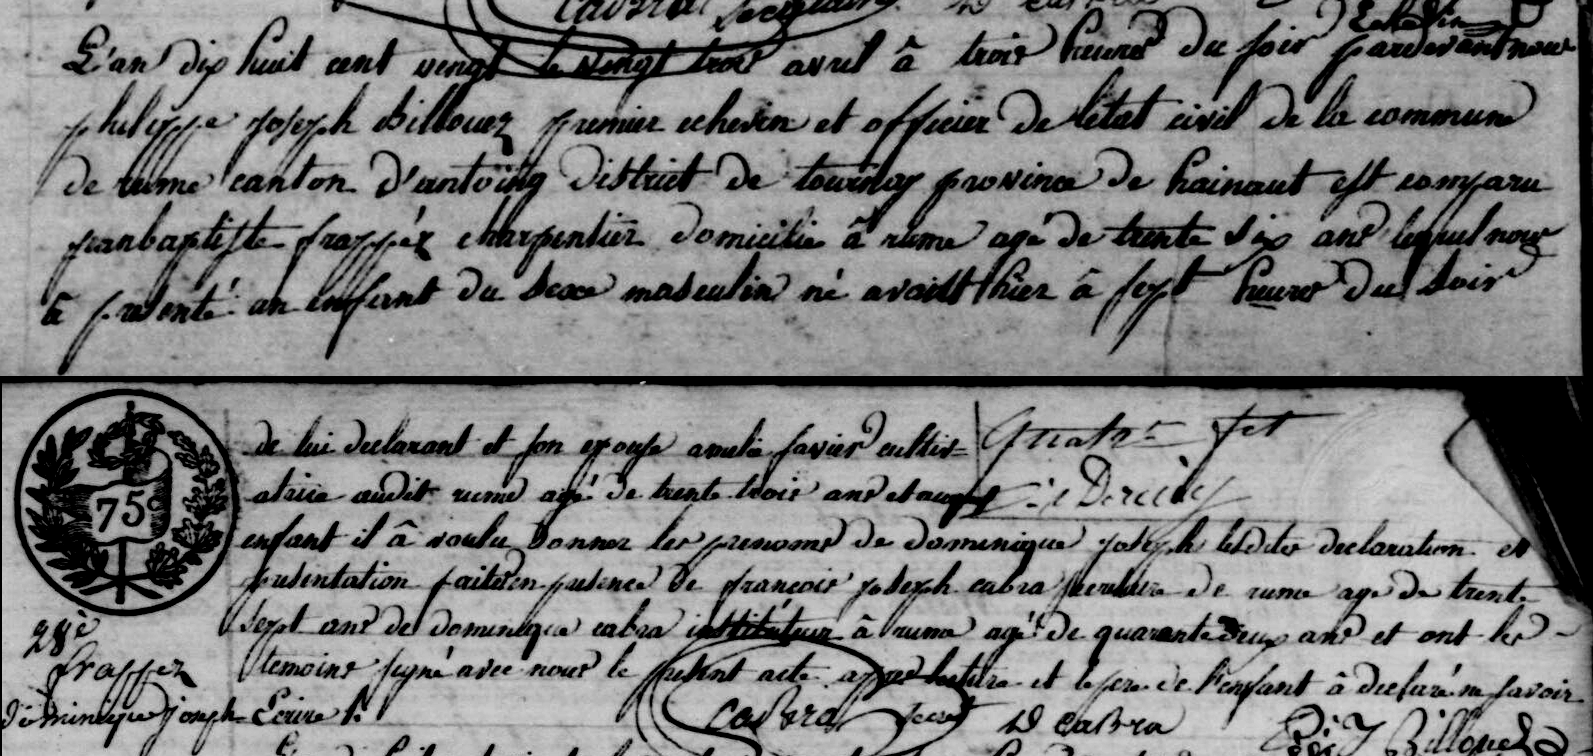 cabra secretaire D cabra
L'an dix huit cent vingt le vingt trois avril â trois heures du soir pardevant nous
philippe joseph Billouez premier echevin et officier De l'état civil de la commune
de rume canton d'antoing District de tournay province de hainaut est comparu
jeanbaptiste frappéz charpentier domicilié â rume agé de trente six ans lequel nous
â présenté un enfant du sexe masculin né avant hier â sept heures du soir
de lui declarant et son epouse amelie favier cultiv=
atrice audit rume agé de trente trois ans et auquel
Quatr
75c
enfant il â voulu donner les prenoms de dominique joseph lesdites declaration et
presentation faites en presence de francois joseph cabra secretaire de rume age de trente
sept ans de dominique cabra instituteur â rume agé de quarante deux ans et ont les
28e
temoins signé avec nous le present acte apres lecture et le pere de l'enfant â declaré ne savoir
frappez
Dominique joseph Ecrire /.
cabra secret D cabra Billouez